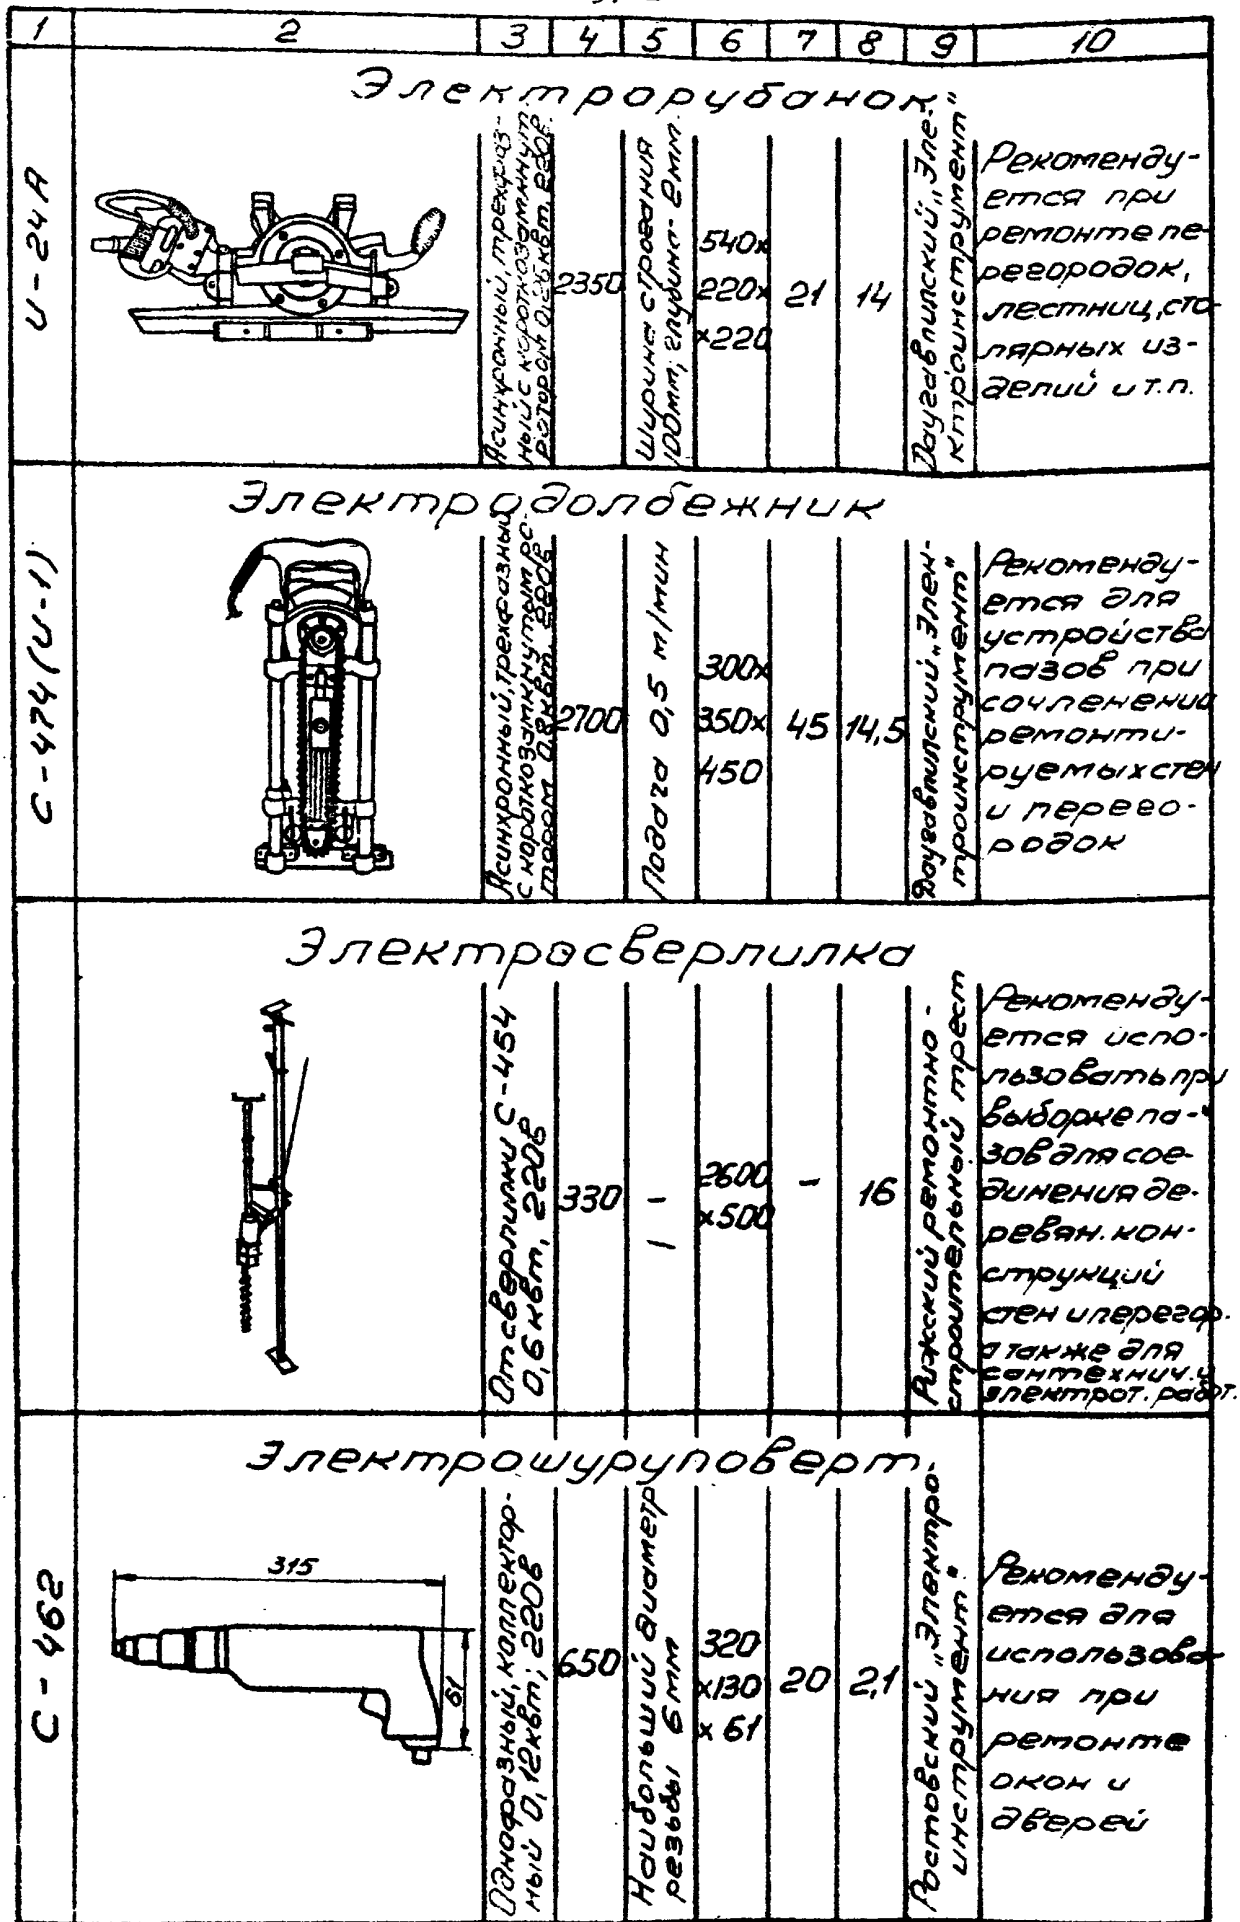 1 2 3 4 5 6 7 8 9 10
Электрорубанок
И-24А
Асинхронный, трехфаз-
ный с короткозамкнут.
ротором 220в.
2350
Ширина строгания
100мм, глубина-2мм.
540х
220х
х220
21
14
Даугавпилсский „Эле-
ктроинструмент"
Рекоменду-
ется при
ремонте пе-
регородок,
лестниц, сто-
лярных из-
делий и т.п.
Электродолбежник
С-474(И-1)
Асинхронный, трехфазный
с короткозамкнутым ро-
тором 0,8квт. 220в
2700
Подача 0,5 м/мин
300х
350х
450
45
14,5
Даугавпилсский „Элек-
троинструмент"
Рекоменду-
ется для
устройства
пазов при
сочленении
ремонти-
руемых стен
и перего-
родок
Электросверлилка
От сверлилки С-454
0,6 квт, 220в
330
—
2600
х500
-
16
Рижский ремонтно-
строительный трест
Рекоменду-
ется испо-
льзовать при
выборке па-
зов для сое-
динения де-
ревян. кон-
струкций
стен и перегор.
а также для
сантехнич. и
электрот. работ.
Электрошуруповерт.
С-462
315
61
Однофазный, коллектор-
ный 0,12квт; 220в
650
Наибольший диаметр
резьбы 6 мм
320
х130
х 61
20
2,1
Ростовский „Электро-
инструмент."
Рекоменду-
ется для
использова-
ния при
ремонте
окон и
дверей